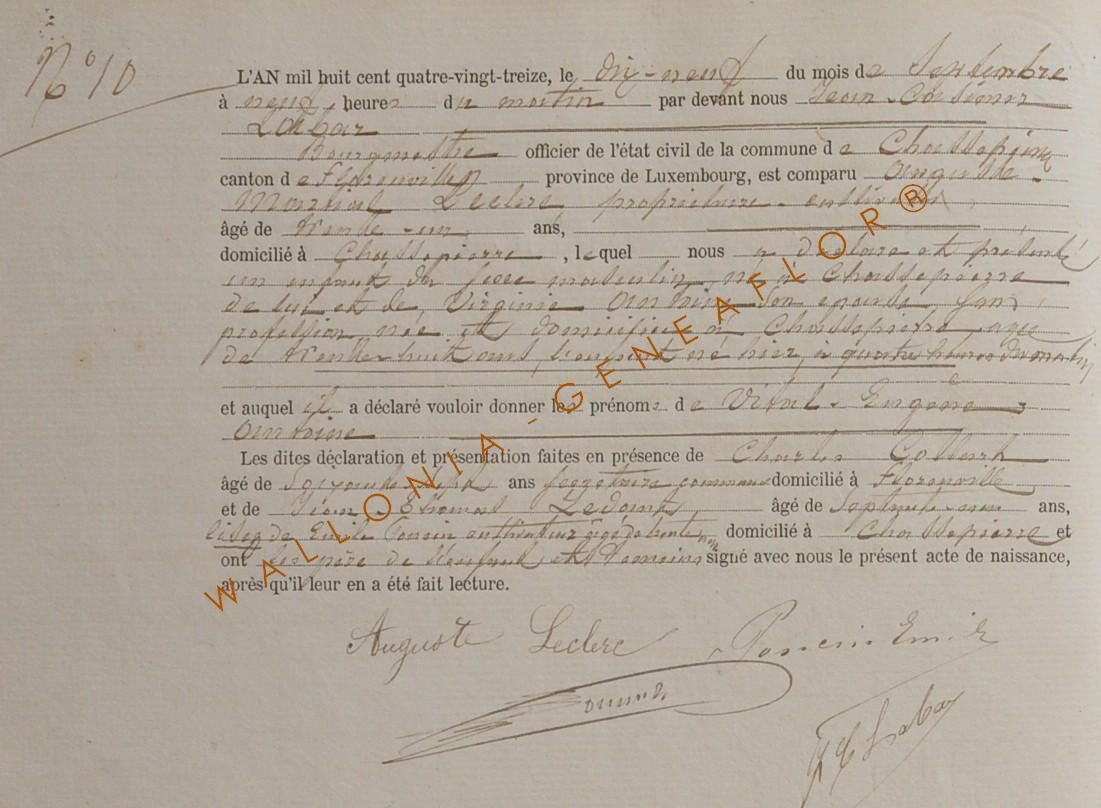 N° 10
L'AN mil huit cent quatre-vingt-treize, le dix-neuf du mois de Septembre
à neuf heures du matin par devant nous Jean-Casimir
Labar
Bourgmestre officier de l'état civil de la commune de Chassepierre
canton de Florenville province de Luxembourg, est comparu Auguste
Martial Leclerc propriétaire cultivateur
âgé de trente-un ans,
domicilié à Chassepierre, lequel nous a déclaré et présenté
un enfant du sexe masculin, né à Chassepierre
de lui et de Virginie Antoine son épouse sans
profession née et domiciliée à Chassepierre, agée
de trente huit ans, l'enfant né hier, à quatre heures du matin
et auquel il a déclaré vouloir donner les prénoms de Vital-Eugène
Antoine
Les dites déclaration et présentation faites en présence de Charles
âgé de Soixante ans secrétaire communal domicilié à Florenville
et de Jean âgé de Septante ans,
lisez de Emile Poncin cultivateur âgé de trente domicilié à Chassepierre et
ont les père de l'enfant et témoins signé avec nous le présent acte de naissance,
après qu'il leur en a été fait lecture.
Auguste Leclerc Poncin Emile
J C Labar
WALLONIA-GENEAFLOR®